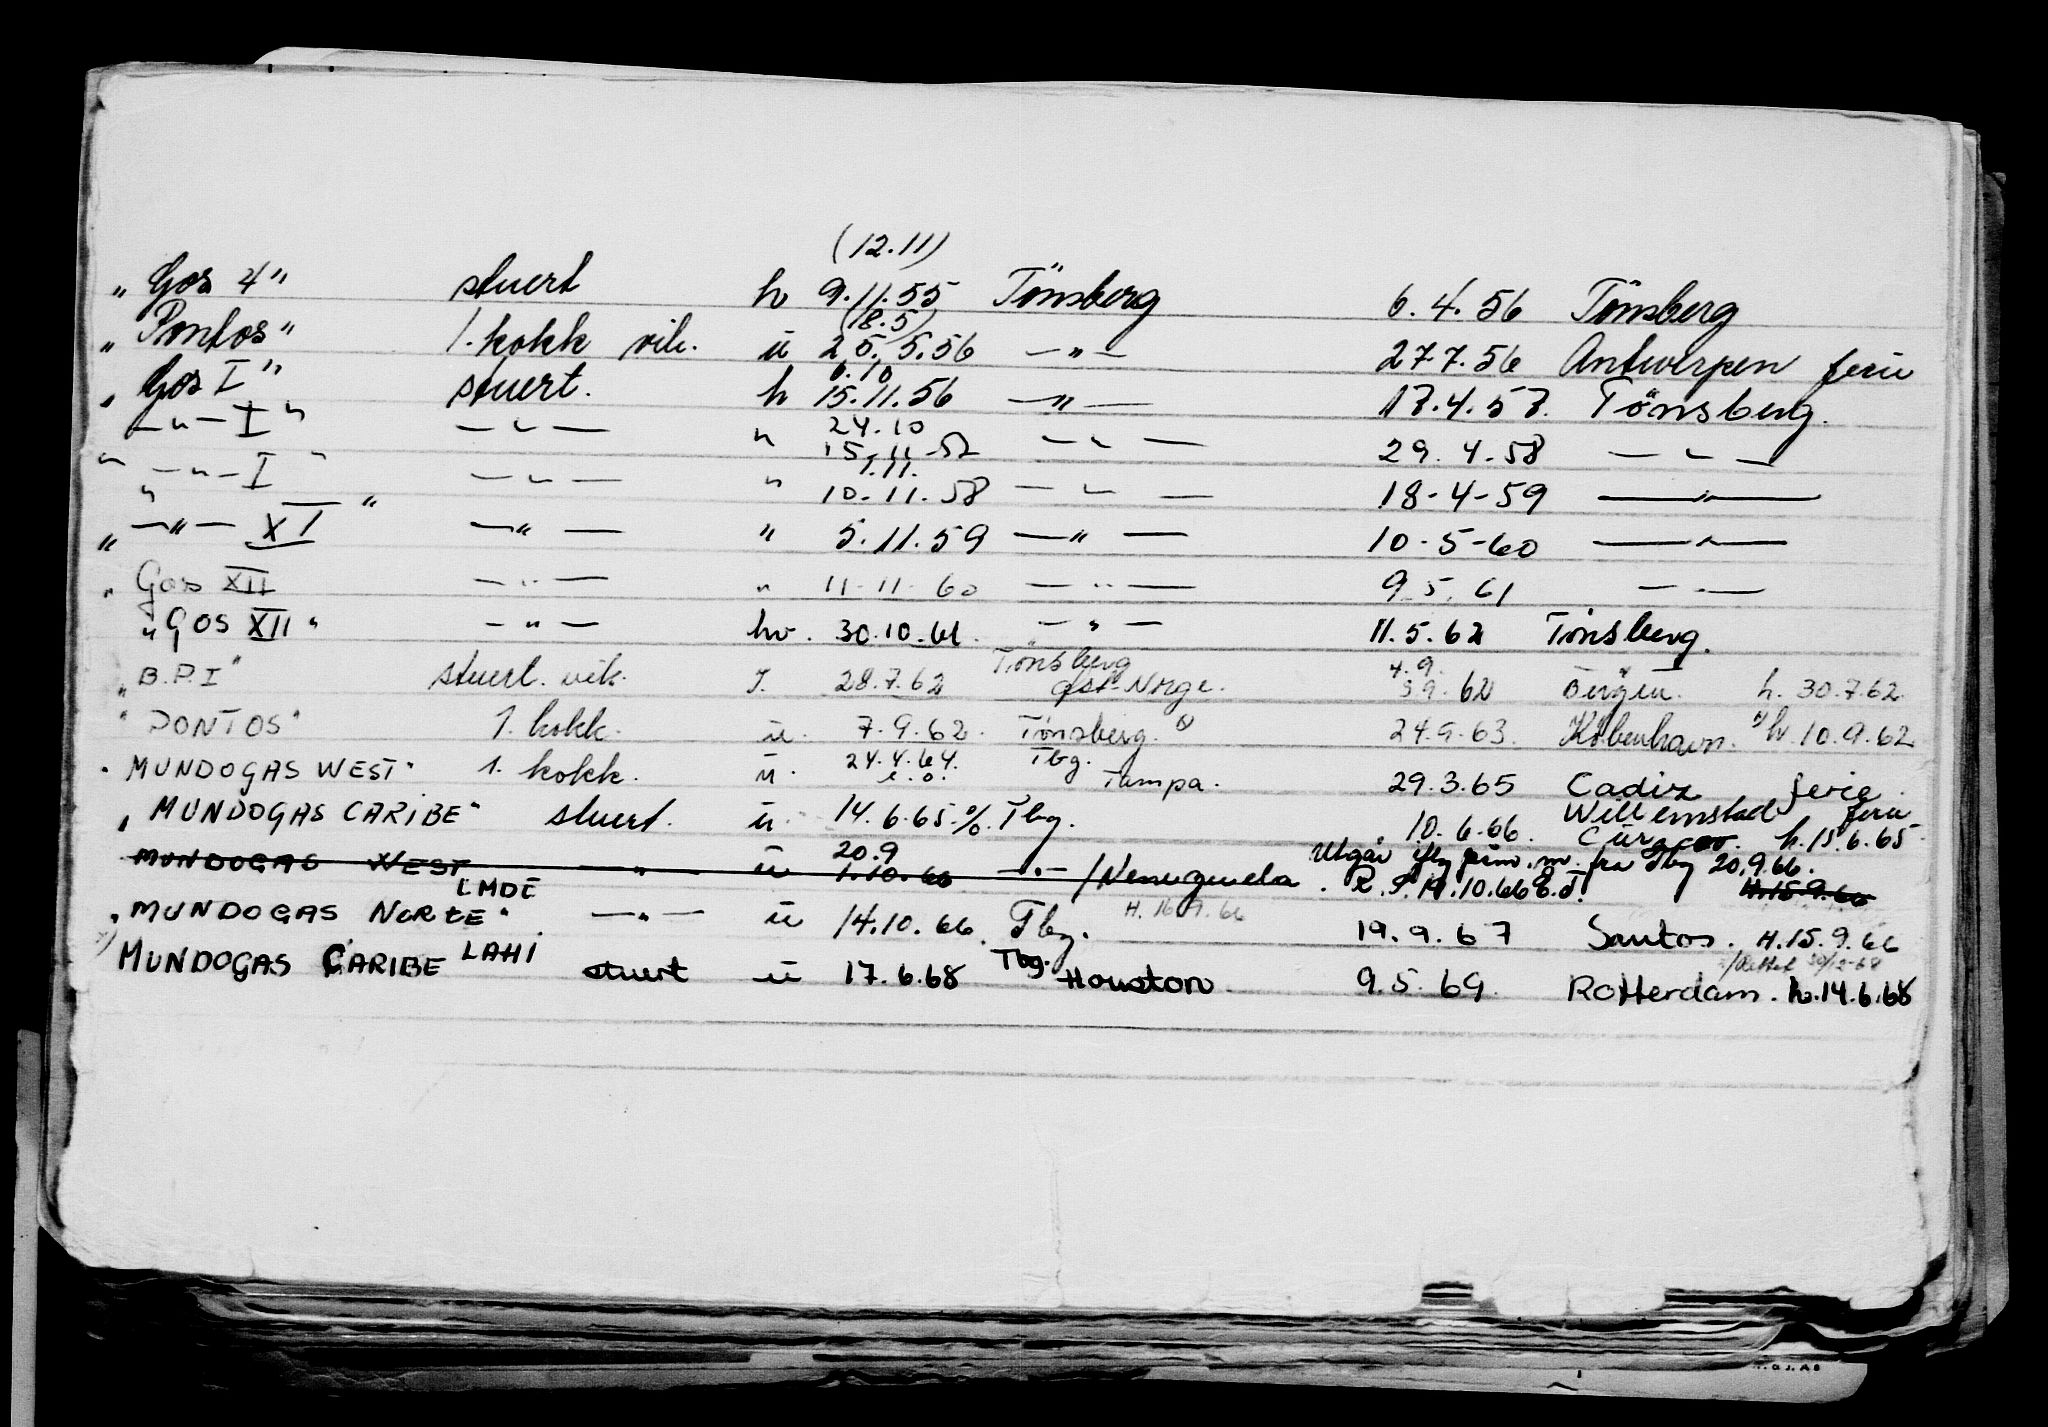 (12.11)
„ Gos 4" stuert h 9.11.55 Tönsberg 6.4.56 Tönsberg
(18.5)
„ Pontos" 1. kokk vik. u 25.5.56 —"— 27.7.56 Antwerpen ferie
6.10
„ Gos I" stuert. h 15.11.56 —"— 17.4.57. Tönsberg.
24.10
—"— I " —"— " 15-11-57 —"— 29.4-58 —"—
1.11.
" —"— I " —"— " 10.11.58 —"— 18-4-59 —"—
„ —"— XI " —"— " 5.11.59 —"— 10-5-60 —"—
„ Gos XII —"— " 11-11-60 —"— 9.5.61 —"—
„ GOS XII " —"— hv. 30.10.61. —"— 11.5.62 Tönsberg.
Tönsberg 4.9.
„ B.P.I " stuert. vik. 28.7.62 øst-Norge. 62 Bergen. h. 30.7.62.
" PONTOS" 1. kokk. u. 7.9.62. Tönsberg. x) 24.9.63. København. x) h. 10.9.62
24.4.64. Tbg.
" MUNDOGAS WEST" 1. kokk. u. Tampa. 29.3.65 Cadiz ferie.
Willemstad ferie
„ MUNDOGAS CARIBE" stuert. u. 14.6.65. % Tbg. 10.6.66. Curacao. h. 15.6.65.
20.9 Utgår fra Tbg 20.9.66.
MUNDOGAS WEST —"— u 1.10.66 —"— /Venezuela. H.15.9.66
LMDE
„ MUNDOGAS NORTE" —"— u 14.10.66. Tbg. H. 16.9.66 19.9.67 Santos. H.15.9.66
LAHI Tbg.
MUNDOGAS CARIBE stuert u 17.6.68 Houston. 9.5.69. Rotterdam. h.14.6.68